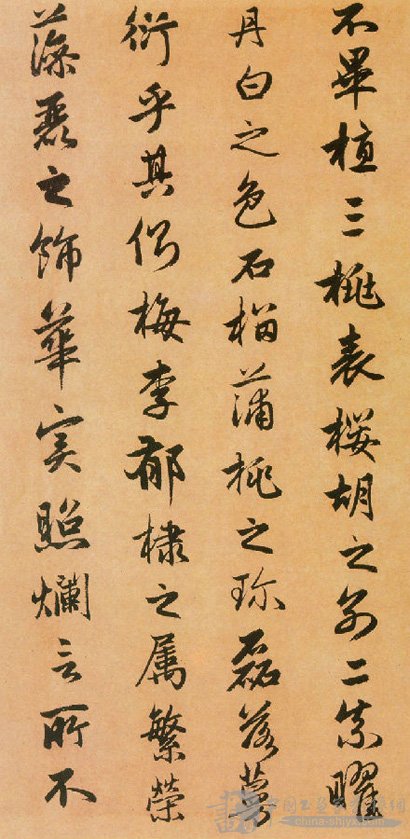 不畢植三桃表櫻胡之別二柰曜
丹白之色石榴蒲桃之珎磊落蔓
衍乎其側梅李郁棣之属繁榮
藻麗之飾華實照爛言所不